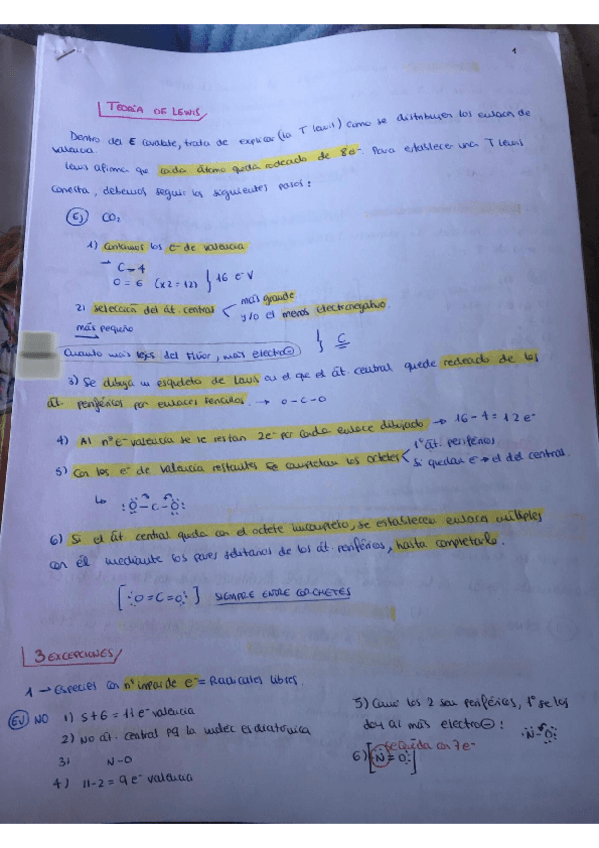 1
TEORÍA DE LEWIS
Dentro del E covalente, trata de explicar (la T Lewis) como se distribuyen los enlaces de
valencia.
Lewis afirma que cada átomo queda rodeado de 8e⁻. Para establecer una T Lewis
correcta, debemos seguir los siguientes pasos:
Ej CO₂
1) Contamos los e⁻ de valencia
→ C = 4
O = 6 (x2 = 12) } 16 e⁻ V
2) selección del át. central < más grande
y/o el menos electronegativo
más pequeño
Cuanto más lejos del Flúor, más electro⊖ } C
3) Se dibuja un esqueleto de Lewis en el que el át. central quede rodeado de los
át. periféricos por enlaces sencillos. → O-C-O
4) Al nº e⁻ valencia se le restan 2e⁻ por cada enlace dibujado → 16 - 4 = 12 e⁻
5) Con los e⁻ de valencia restantes se completan los octetes < 1º át. periféricos
si quedan e⁻ → el del central.
↳ :Ö-C-Ö:
6) Si el át. central queda con el octete incompleto, se establecen enlaces múltiples
con él mediante los pares solitarios de los át. periféricos, hasta completarlo.
[:O=C=O:] SIEMPRE ENTRE CORCHETES
3 EXCEPCIONES
1 → Especies con nº impar de e⁻ = Radicales libres.
EJ NO 1) 5+6 = 11 e⁻ valencia
2) No át. central pq la molec es diatómica
3) N-O
4) 11-2 = 9 e⁻ valencia
5) Como los 2 son periféricos, 1º se los
doy al más electro⊖: :N-Ö:
se queda con 7e⁻
6) [N=O:]